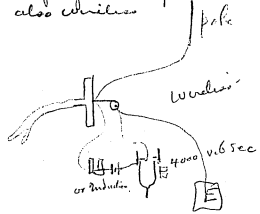 also wireless
pole
wireless
4000 v.6 sec
or induction
E